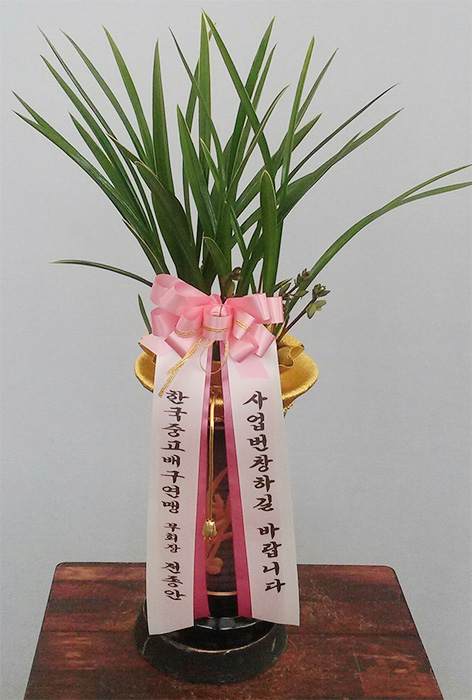 사업번창하길 바랍니다
한국중고배구연맹 부회장 전종안